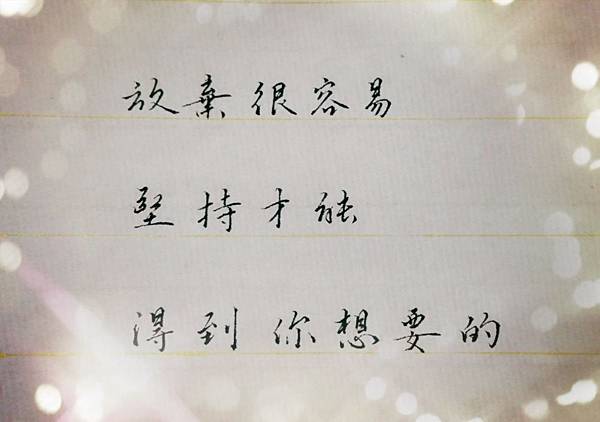 放棄很容易
堅持才能
得到你想要的